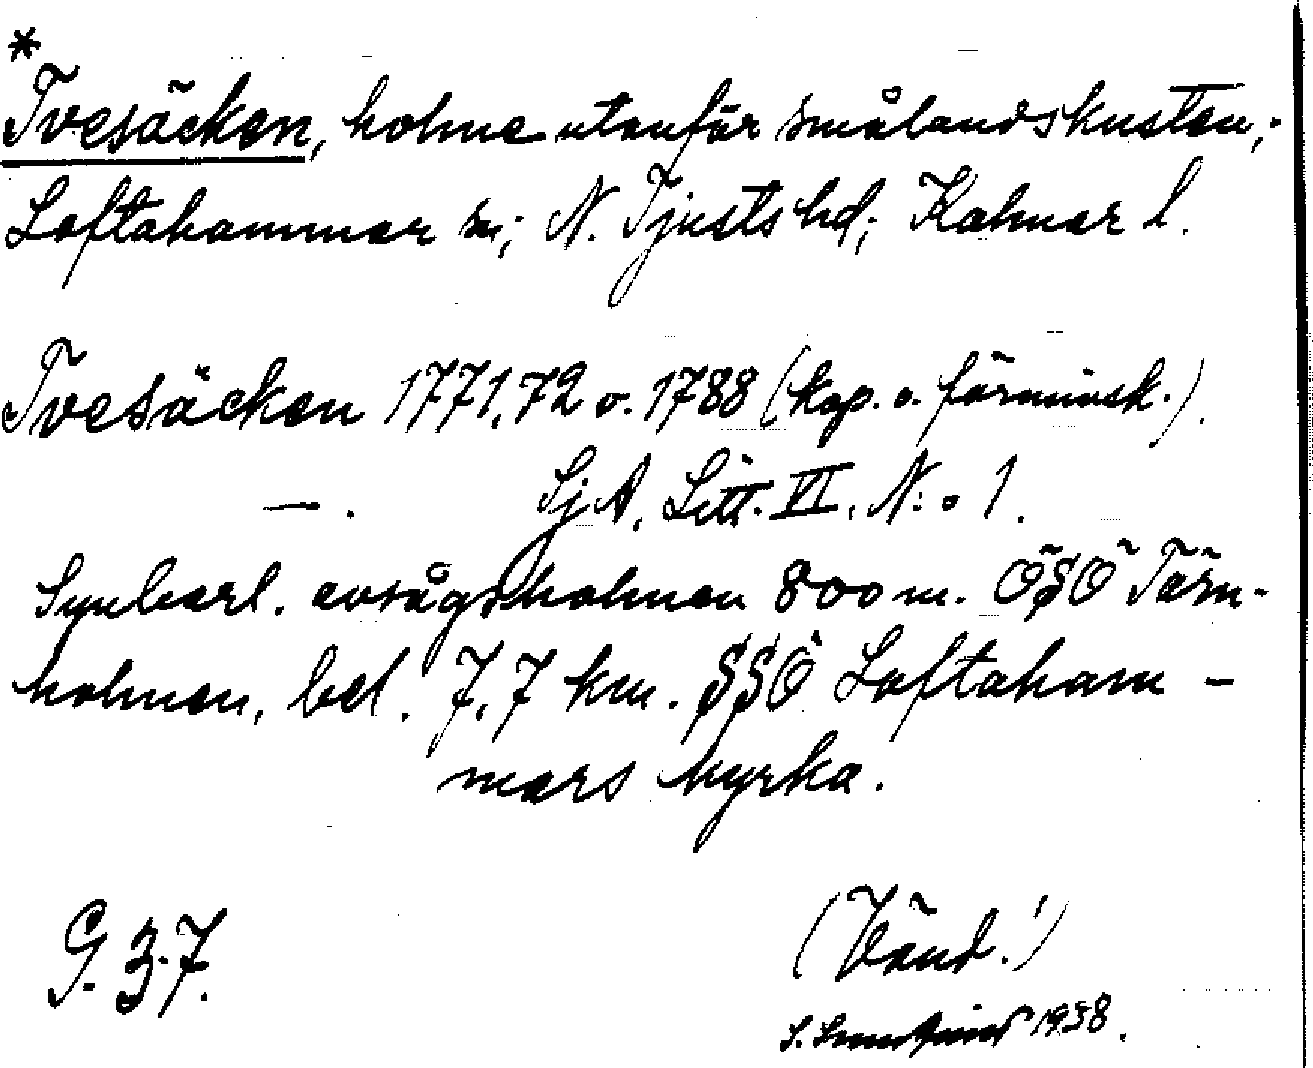 *
Tvesäcken, holme utanför smålandskusten,;
Loftahammar sn; N. Tjusts hd; Kalmar l.
Tvesäcken 1771, 72 o. 1788 (kop. o. förminsk.).
— . SjA, Litt. VI. N:o 1.
Synbarl. avsågs holmen 800 m. ÖSÖ Tärn-
holmen, bel. 7,7 km. SSÖ Loftaham-
mars kyrka.
G. 3.7.
(Vänd!)
1938.